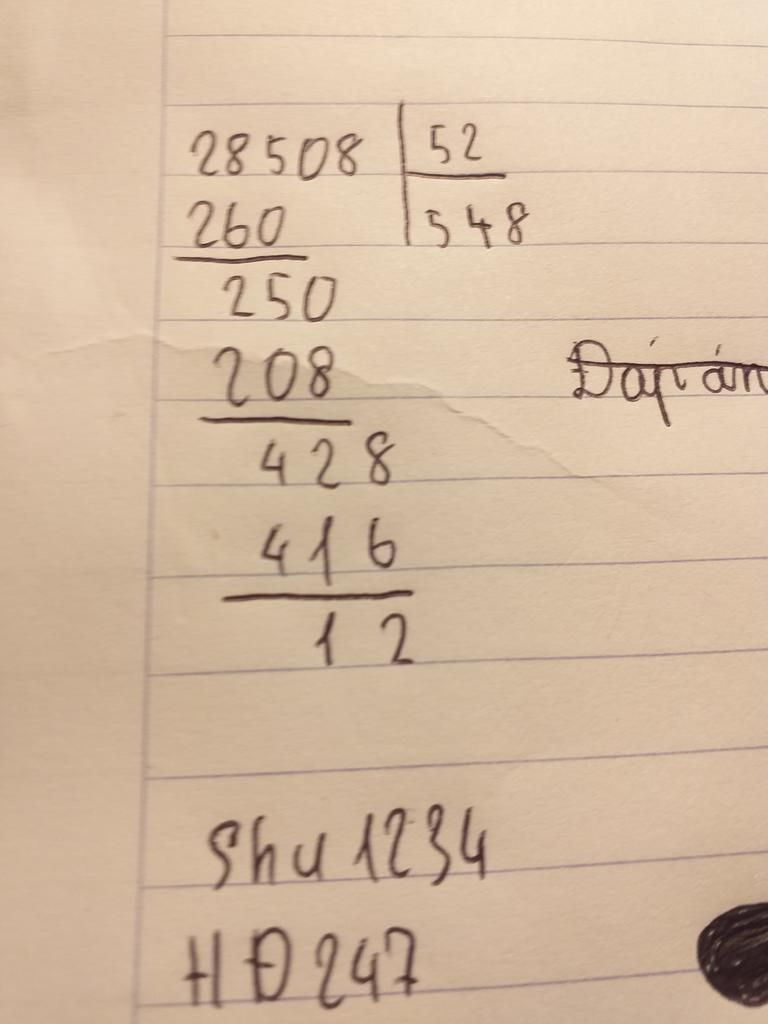 28508 52
260 548
250
208
Đáp án
428
416
12
Shu1234
HĐ247